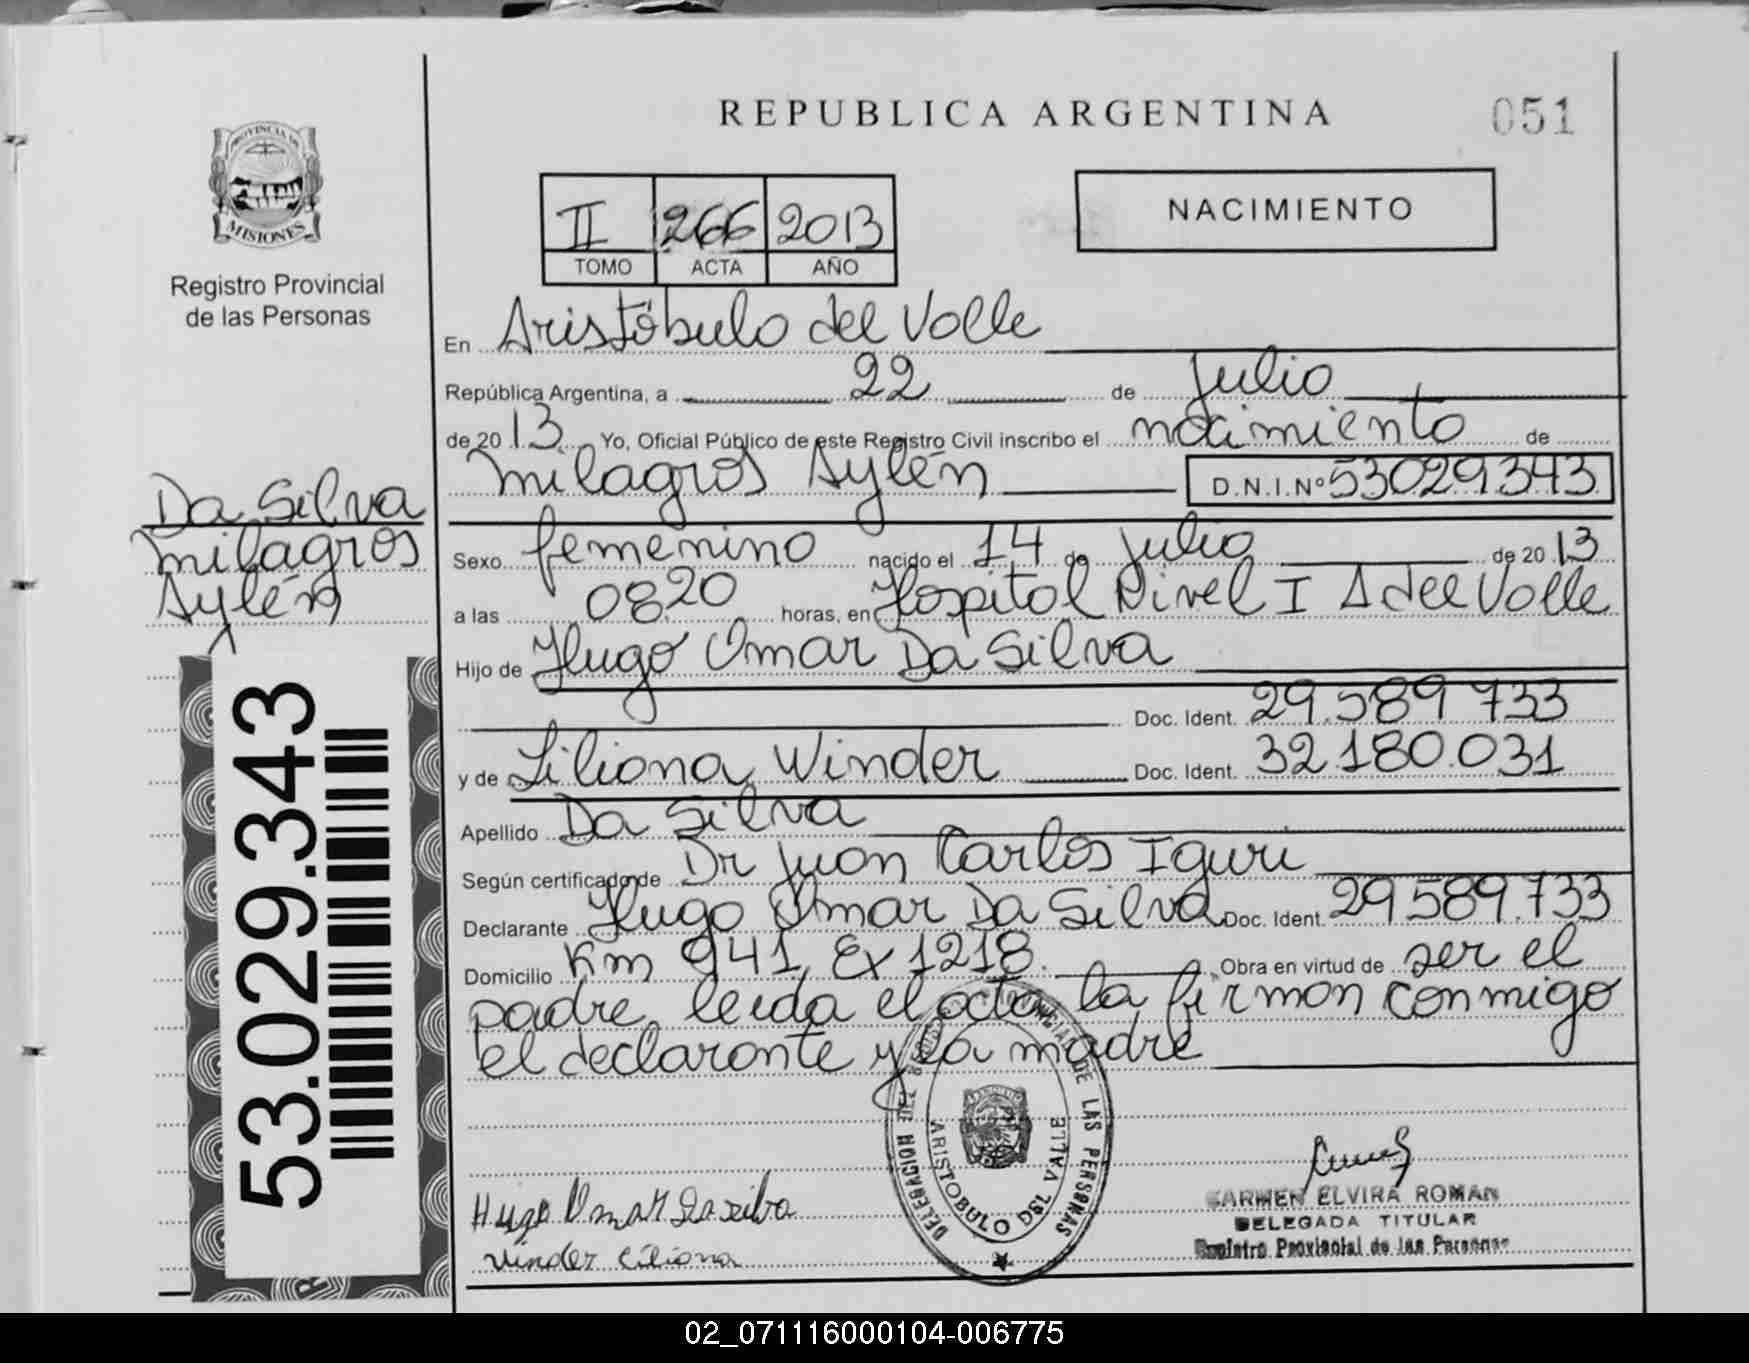 REPUBLICA ARGENTINA
051
PROVINCIA DE
MISIONES
Registro Provincial
de las Personas
II 266 2013
TOMO ACTA AÑO
NACIMIENTO
En Aristóbulo del Valle
República Argentina, a 22 de Julio
de 2013. Yo, Oficial Público de este Registro Civil inscribo el nacimiento de
Milagros Aylén D.N.I.Nº 53029343
Da Silva
Milagros
Aylén
Sexo femenino nacido el 14 de Julio de 2013
a las 0820 horas, en Hospital Nivel I A del Valle
Hijo de Hugo Omar Da Silva
Doc. Ident. 29.589 733
y de Liliana Winder Doc. Ident. 32.180.031
Apellido Da Silva
Según certificado de Dr Juan Carlos Iguri
Declarante Hugo Omar Da Silva Doc. Ident. 29 589.733
Domicilio Km 941, Ex 1218. Obra en virtud de ser el
padre, leida el acta, la firman conmigo
el declarante y la madre
53.029.343
DELEGACION DEL REGISTRO PROVINCIAL DE LAS PERSONAS
ARISTOBULO DEL VALLE
Hugo Omar Da silva
Winder Liliana
CARMEN ELVIRA ROMAN
DELEGADA TITULAR
Registro Provincial de las Personas
02_071116000104-006775